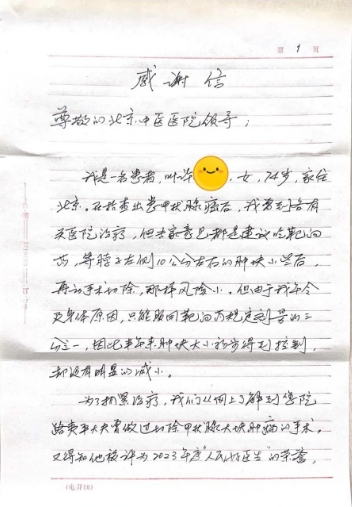 第 1 页
感谢信
尊敬的北京中医医院领导：
我是一名患者，叫许 ，女，74岁，家住
北京。在检查出患甲状腺癌后，我曾到各有
关医院治疗，但专家意见都是建议吃靶向
药，等脖子左侧10公分左右的肿块小些后，
再动手术切除，那样风险小。但由于我年令
及身体原因，只能服用靶向药规定剂量的三
分之一，因此去年来肿块大小初步得到控制，
却没有明显的减小。
为了积累治疗，我们从网上了解到贵院
大夫曾做过切除甲状腺大块肿瘤的手术。
又得知他被评为2023年度"人民好医生"的荣誉，